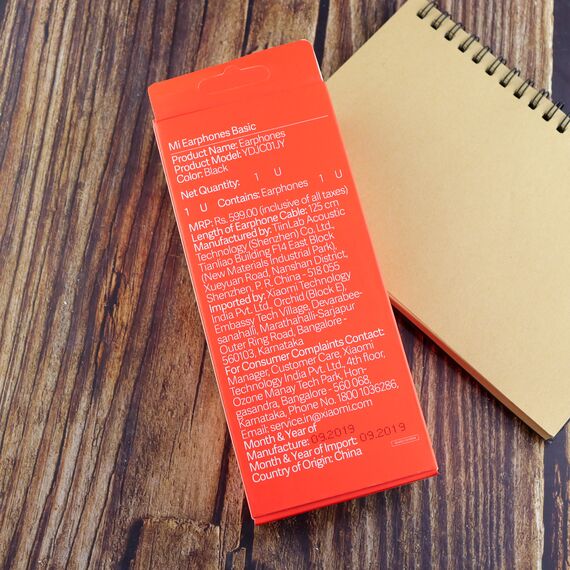 Mi Earphones Basic
Product Name: Earphones
Product Model: YDJC01JY
Color: Black
Net Quantity: 1 U
1 U Contains: Earphones 1 U
MRP: Rs. 599.00 (inclusive of all taxes)
Length of Earphone Cable: 125 cm
Manufactured by: TiinLab Acoustic
Technology (Shenzhen) Co., Ltd.,
Tianliao Building F14 East Block
(New Materials Industrial Park),
Xueyuan Road, Nanshan District,
Shenzhen, P. R. China - 518 055
Imported by: Xiaomi Technology
India Pvt. Ltd., Orchid (Block E),
Embassy Tech Village, Devarabee-
sanahalli, Marathahalli-Sarjapur
Outer Ring Road, Bangalore -
560103, Karnataka
For Consumer Complaints Contact:
Manager, Customer Care, Xiaomi
Technology India Pvt. Ltd., 4th floor,
Ozone Manay Tech Park, Hon-
gasandra, Bangalore - 560 068,
Karnataka, Phone No. 1800 1036286,
Email: service.in@xiaomi.com
Month & Year of
Manufacture: 09.2019
Month & Year of Import: 09.2019
Country of Origin: China